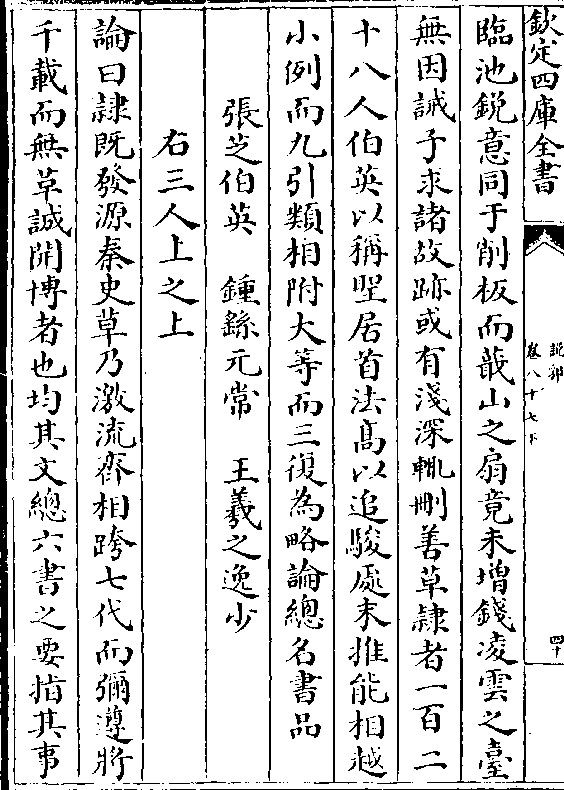 欽定四庫全書
説郛
卷八十七下
四十
臨池鋭意同于削板而蕺山之扇竟未增錢凌雲之臺
無因誡子求諸故跡或有淺深輙刪善草隸者一百二
十八人伯英以稱聖居首法髙以追駿處末推能相越
小例而九引類相附大等而三復為略論總名書品
張芝伯英　鍾繇元常　王羲之逸少
右三人上之上
論曰隷既發源秦史草乃激流齊相跨七代而彌遵將
千載而無草誠開博者也均其文總六書之要指其事